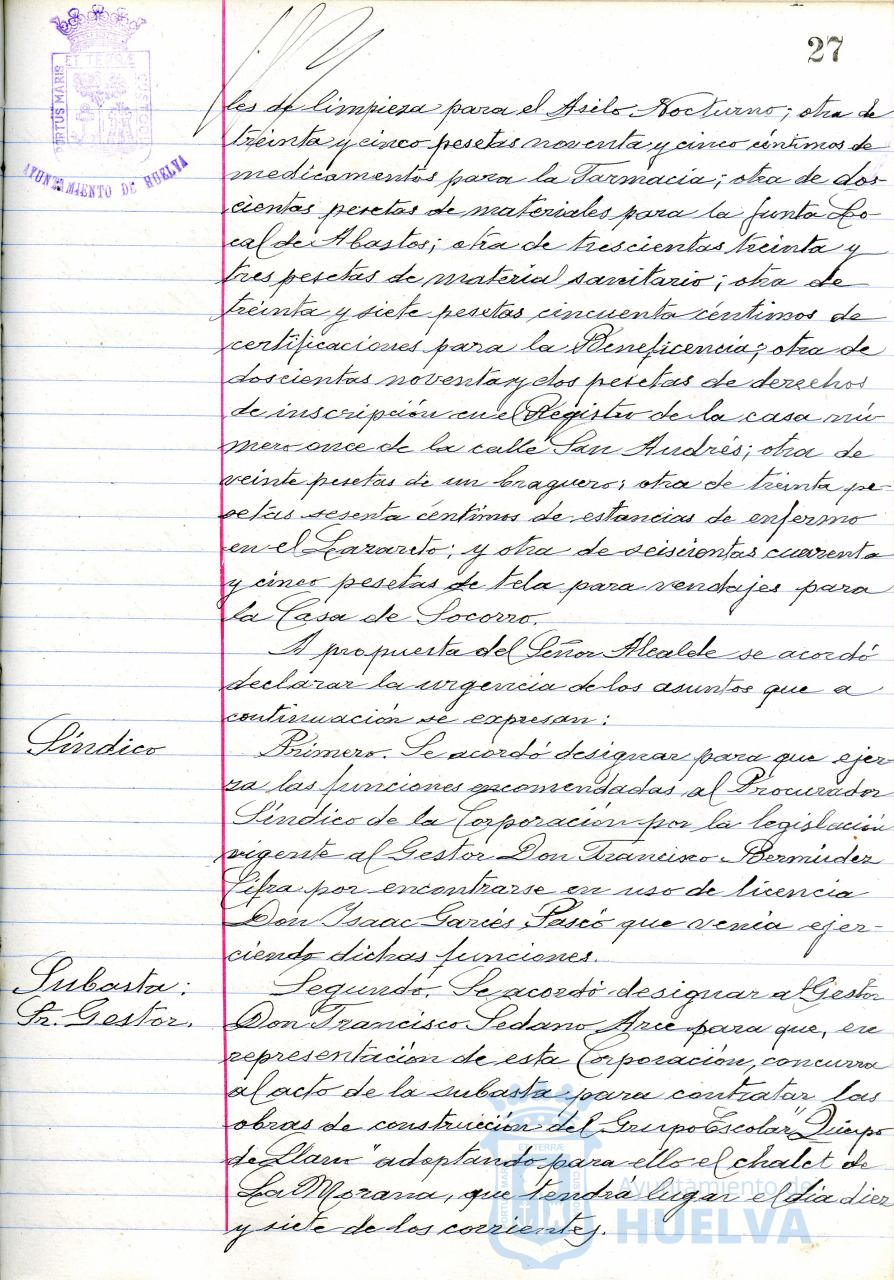 27
PORTUS MARIS ET TERRÆ CUSTODIA
AYUNTAMIENTO DE HUELVA
les de limpieza para el Asilo Nocturno; otra de
treinta y cinco pesetas noventa y cinco céntimos de
medicamentos para la Farmacia; otra de dos-
cientas pesetas de materiales para la Junta Lo-
cal de Abastos; otra de trescientas treinta y
tres pesetas de material sanitario; otra de
treinta y siete pesetas cincuenta céntimos de
certificaciones para la Beneficencia; otra de
doscientas noventa y dos pesetas de derechos
de inscripción en el Registro de la casa nú-
mero once de la calle San Andrés; otra de
veinte pesetas de un braguero; otra de treinta pe-
setas sesenta céntimos de estancias de enfermo
en el Lazareto; y otra de seiscientas cuarenta
y cinco pesetas de tela para vendajes para
la Casa de Socorro.
A propuesta del Señor Alcalde se acordó
declarar la urgencia de los asuntos que a
continuación se expresan:
Síndico
Primero. Se acordó designar para que ejer-
za las funciones encomendadas al Procurador
Síndico de la Corporación por la legislación
vigente al Gestor Don Francisco Bermúdez
Cifra por encontrarse en uso de licencia
Don Isaac Garcés Pascó que venía ejer-
ciendo dichas funciones.
Subasta:
Sr. Gestor.
Segundo. Se acordó designar al Gestor
Don Francisco Sedano Arce para que, en
representación de esta Corporación, concurra
al acto de la subasta para contratar las
obras de construcción del Grupo Escolar "Queipo
de Llano" adoptando para ello el chalet de
La Morana, que tendrá lugar el día diez
y siete de los corrientes.
Ayuntamiento de
HUELVA